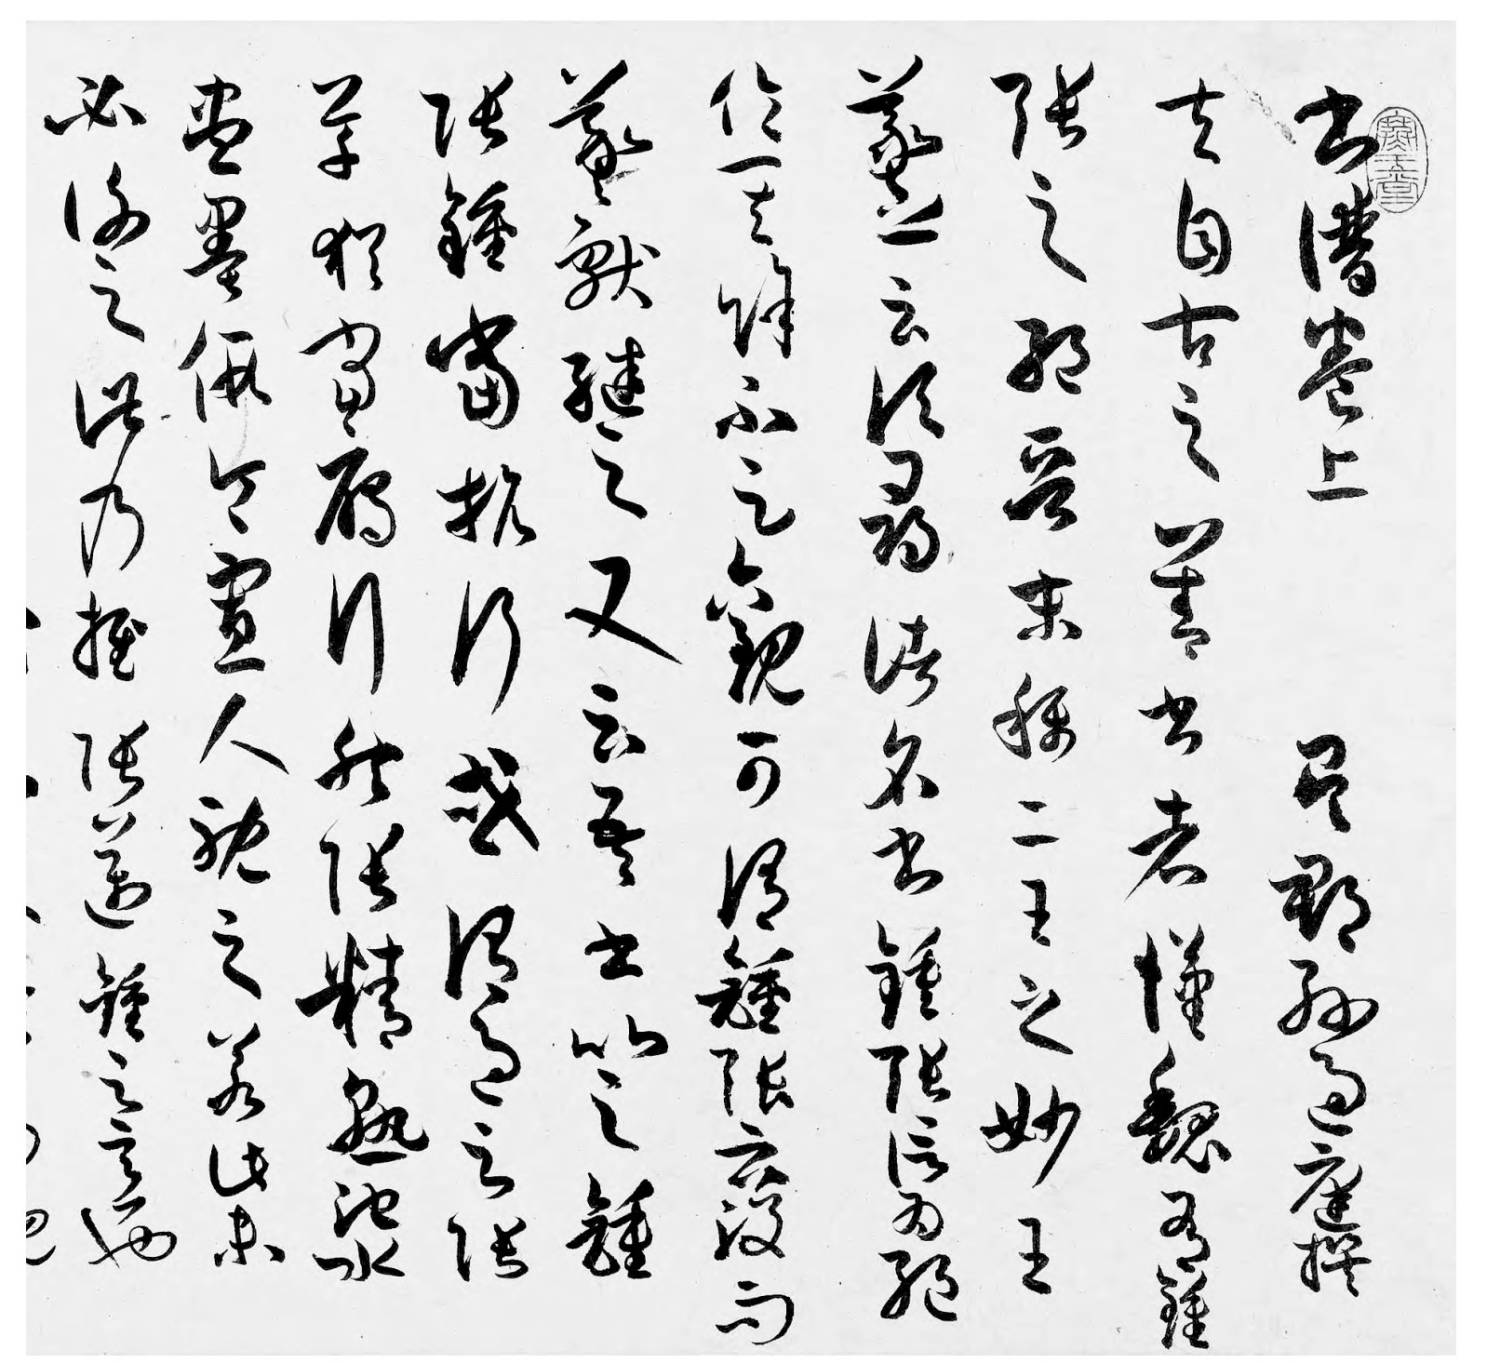 書譜卷上 吳郡孫過庭撰
夫自古之善書者漢魏有鍾
張之絕晉末稱二王之妙王
羲之云頃尋諸名書鍾張信為絕
倫其餘不足觀可謂鍾張云沒而
羲獻繼之又云吾書比之鍾
張鍾當抗行或謂過之張
草猶當雁行然張精熟池水
盡墨假令寡人耽之若此未
必謝之此乃推張邁鍾之意也